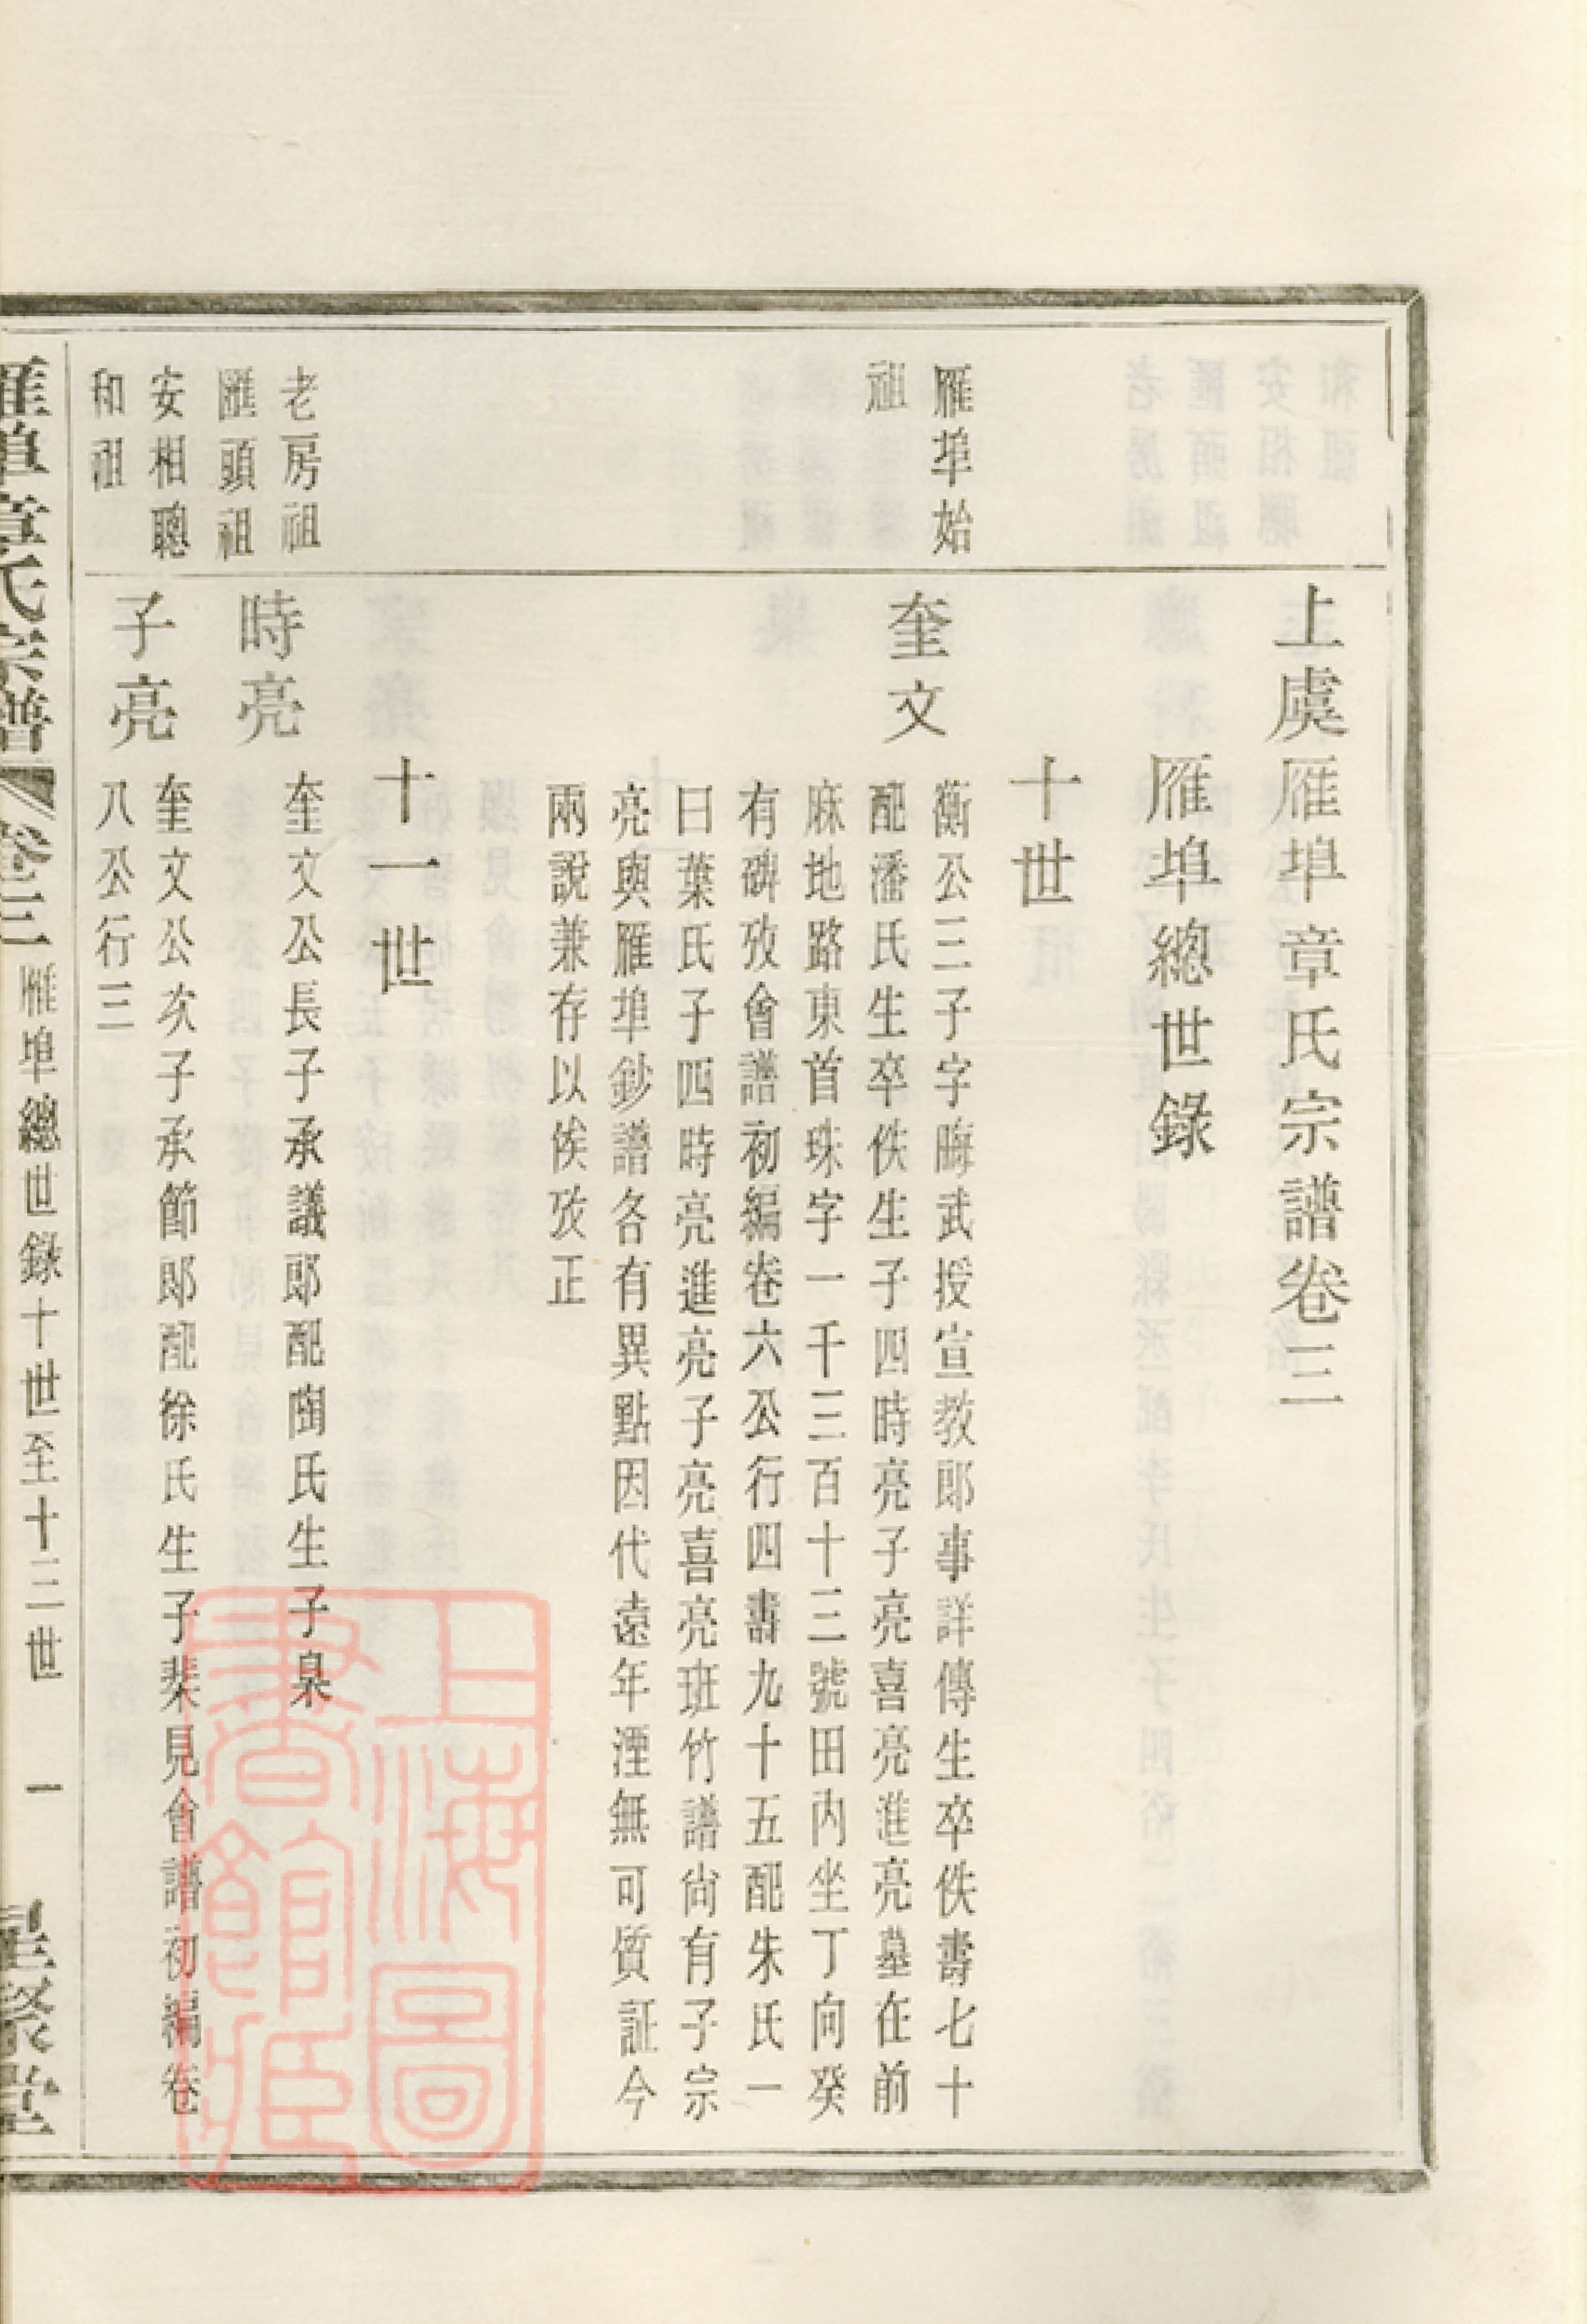 上虞雁埠章氏宗譜卷三
雁埠總世錄
十世
雁埠始
祖
奎文
衡公三子字晦武授宣教郎事詳傳生卒佚壽七十
配潘氏生卒佚生子四時亮子亮喜亮進亮墓在前
庥地路東首珠字一千三百十三號田內坐丁向癸
有碑攷會譜初編卷六公行四壽九十五配朱氏一
曰葉氏子四時亮進亮子亮喜亮班竹譜尙有子宗
亮與雁埠鈔譜各有異點因代遠年湮無可質証今
兩說兼存以俟攷正
十一世
老房祖
匯頭祖
時亮
奎文公長子承議郎配陶氏生子臬
安相聰
和祖
子亮
奎文公次子承節郎配徐氏生子棐見會譜初編卷
八公行三
雁埠章氏宗譜 卷三 雁埠總世錄十世至十三世 一 星聚堂
上海圖
書館藏